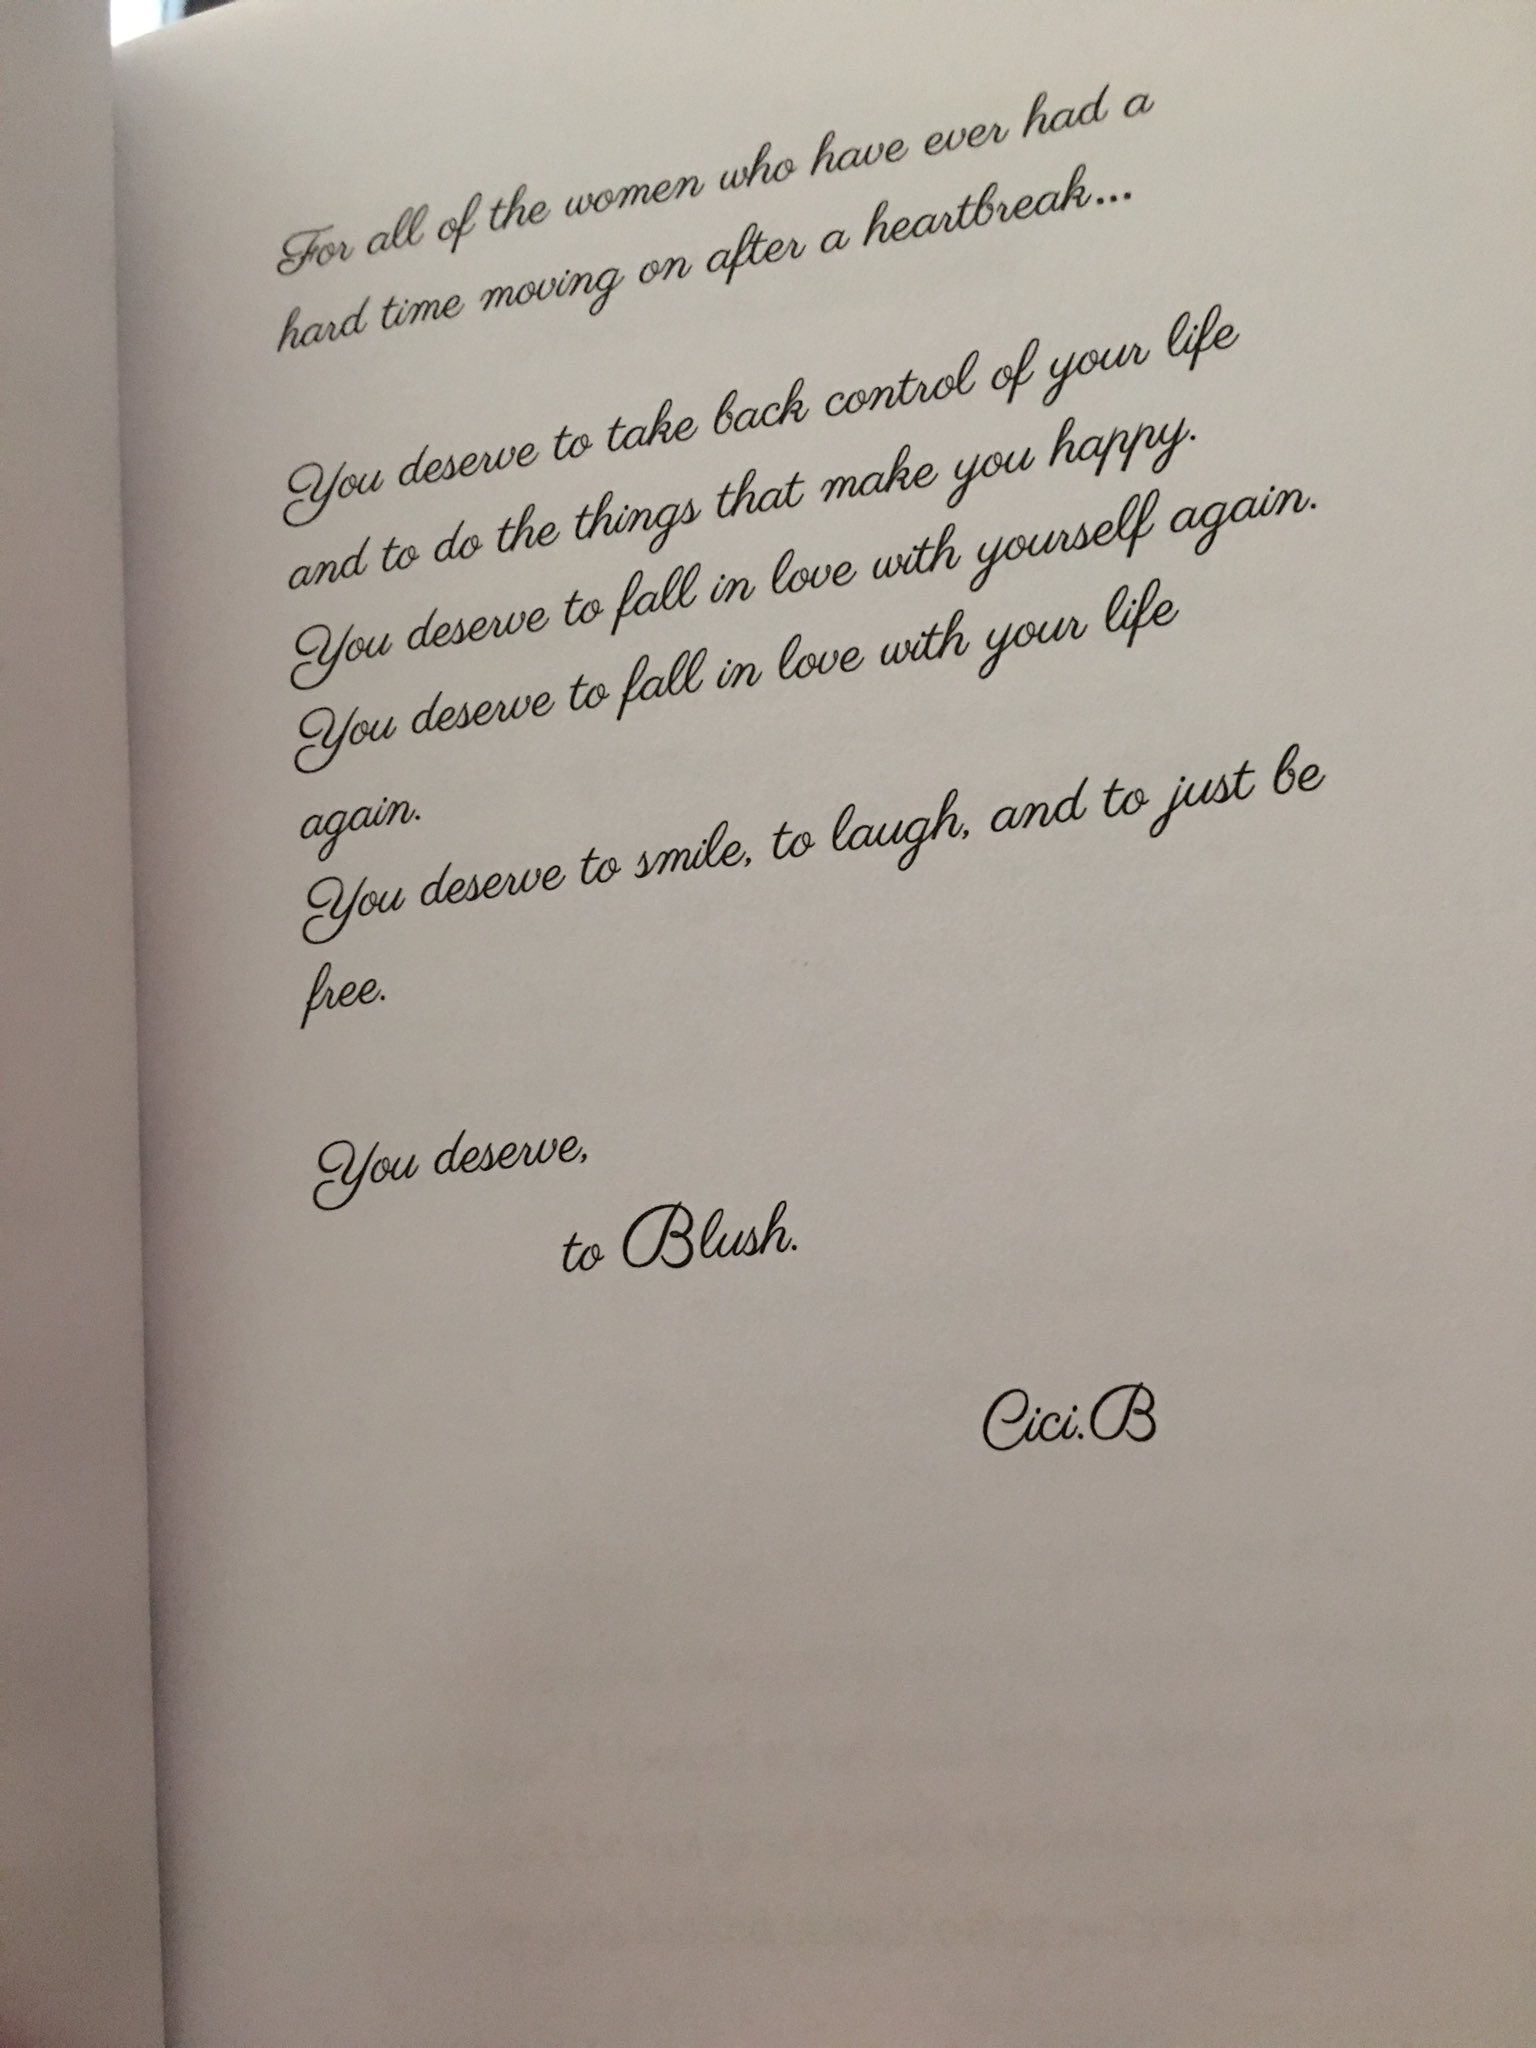 For all of the women who have ever had a
hard time moving on after a heartbreak...
You deserve to take back control of your life
and to do the things that make you happy.
You deserve to fall in love with yourself again.
You deserve to fall in love with your life
again.
You deserve to smile, to laugh, and to just be
free.
You deserve,
to Blush.
Cici.B